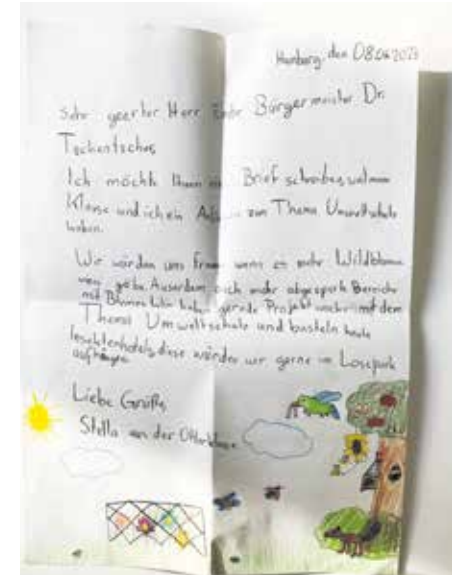 Hamburg, den 08.06.2023
Sehr geerter Herr Bürgermeister Dr.
Tschentscher,
Ich möchte Ihnen Brief schreiben,
Klasse und ich ein zum Thema Umweltschule
haben.
Wir würden uns freuen wenn es mehr Wildblumen
gebe. Auserdem auch mehr abgesperte Bereiche
mit Blumen. Wir haben gerade Projekt mit dem
Thema Umweltschule und basteln heute
diese würden wir gerne im Losepark
aufhängen
Liebe Grüße
Stella aus der Otterklasse